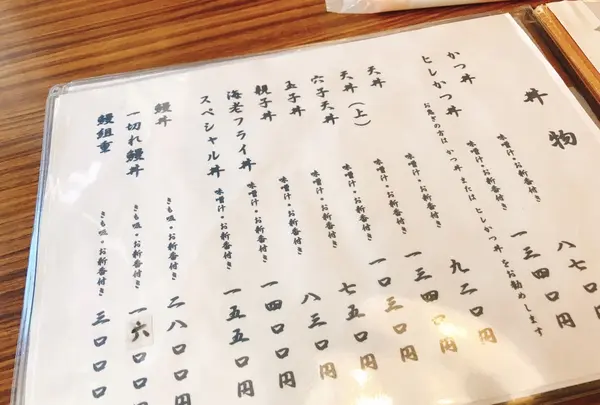 丼物
かつ丼 味噌汁・お新香付き 八七〇円
ヒレかつ丼 味噌汁・お新香付き 一三四〇円
お急ぎの方は かつ丼 または ヒレかつ丼 をお勧めします
天丼 味噌汁・お新香付き 九二〇円
天丼(上) 味噌汁・お新香付き 一三四〇円
穴子天丼 味噌汁・お新香付き 一〇三〇円
玉子丼 味噌汁・お新香付き 七五〇円
親子丼 味噌汁・お新香付き 八三〇円
海老フライ丼 味噌汁・お新香付き 一四〇〇円
スペシャル丼 味噌汁・お新香付き 一五五〇円
鰻丼 きも吸・お新香付き 二八〇〇円
一切れ鰻丼 きも吸・お新香付き 一六〇〇円
鰻組重 きも吸・お新香付き 三〇〇〇